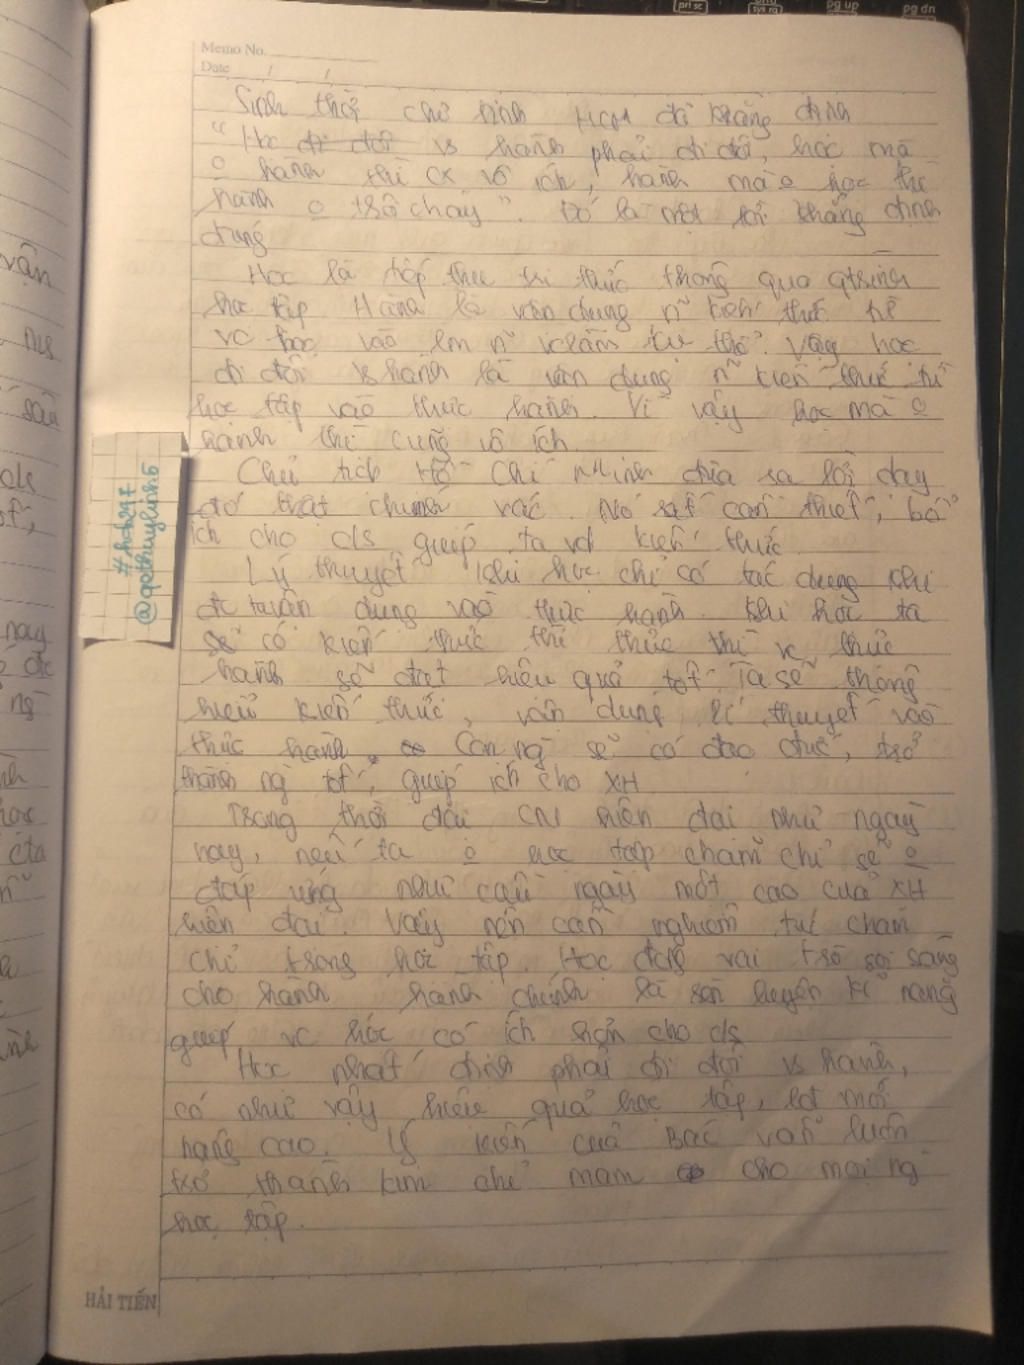 Memo No.
Date / /
Sinh thời chủ tịch HCM đã khẳng định
"Học đi đôi vs hành phải đi đôi, học mà
o hành thì cx vô ích, hành mà o học thì
hành o trôi chảy". Đó là một lời khẳng định
đúng
Học là tiếp thu tri thức thông qua qtrình
học tập Hành là vận dụng n~ kiến thức về
vc học vào lm n~ vc làm cụ thể. Vậy học
đi đôi vs hành là vận dụng n~ kiến thức từ
học tập vào thực hành. Vì vậy học mà o
hành thì cũng vô ích.
Chủ tịch Hồ Chí Minh đưa ra lời dạy
đó thật chính xác. Nó rất cần thiết, bổ
ích cho c/s giúp ta có kiến thức
Lý thuyết khi học chỉ có tác dụng khi
đc vận dụng vào thực hành. Khi học ta
sẽ có kiến thức thì vc thực
hành sẽ đạt hiệu quả tốt. Ta sẽ thông
hiểu kiến thức, vận dụng lí thuyết vào
thực hành. Con ng sẽ có đạo đức, trở
thành ng tốt, giúp ích cho XH
Trong thời đại CN hiện đại như ngày
nay, nếu ta o học tập chăm chỉ sẽ o
đáp ứng nhu cầu ngày một cao của XH
hiện đại. Vậy nên cần nghiêm túc chăm
chỉ trong học tập. Học đóng vai trò soi sáng
cho hành hành chính là rèn luyện kĩ năng
giúp vc học có ích hơn cho c/s
Học nhất định phải đi đôi vs hành,
có như vậy hiệu quả học tập, lđ mới
nâng cao. Ý kiến của Bác vẫn luôn
trở thành kim chỉ nam cho mọi ng
học tập.
#hob247
@qothuylinh5
HẢI TIẾN